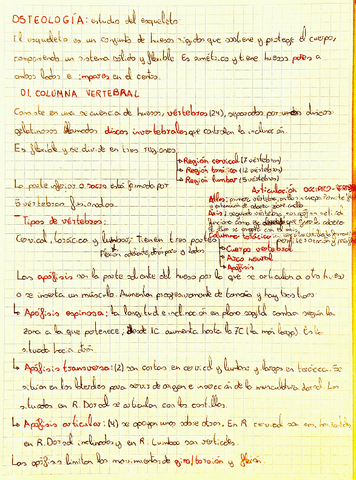 OSTEOLOGÍA: estudio del esqueleto
El esqueleto es un conjunto de huesos rígidos que sostiene y protege el cuerpo,
componiendo un sistema sólido y flexible. Es simétrico y tiene huesos pares a
ambos lados e impares en el centro.
01. COLUMNA VERTEBRAL
Consiste en una secuencia de huesos, vértebras (24), separados por unos discos
gelatinosos llamados discos invertebrales que controlan la inclinación.
Es flexible y se divide en tres regiones
Región cervical (7 vértebras)
Región torácica (12 vértebras)
Región lumbar (5 vértebras)
La parte inferior o sacro está formado por
5 vértebras fusionadas.
Articulación
Atlas: primera vértebra,
Axis: segunda vértebra,
- Tipos de vértebras:
Cervical, torácica y lumbar. Tienen tres partes
Cuerpo vertebral
Arco neural
Apófisis
Las apófisis son la parte saliente del hueso por la que se articula a otro hueso
o se inserta un músculo. Aumentan progresivamente de tamaño y hay tres tipos
Apófisis espinosa: la longitud e inclinación en plano sagital cambia según la
zona a la que pertenece; desde 1C aumenta hasta la 7C (la más larga). Está
situada hacia atrás.
Apófisis transversa: (2) son cortas en cervical y lumbar y largas en torácica. Se
sitúan en los laterales para servir de origen e inserción de la musculatura dorsal. Las
situadas en R. Dorsal se articulan con las costillas.
Apófisis articular: (4) se apoyan unas sobre otras. En R. cervical son
en R. Dorsal inclinadas y en R. Lumbar son verticales.
Las apófisis limitan los movimientos de giro/torsión y flexión.